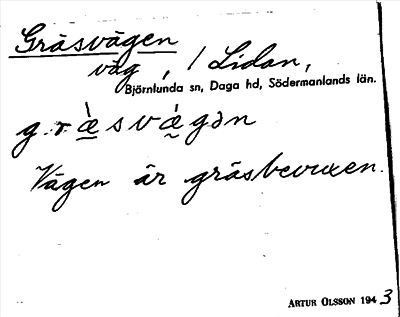 Gräsvägen
väg, / Lidan,
Björnlunda sn, Daga hd, Södermanlands län.
g.r.æ̀svǽ̰gən
Vägen är gräsbevuxen.
ARTUR OLSSON 1943